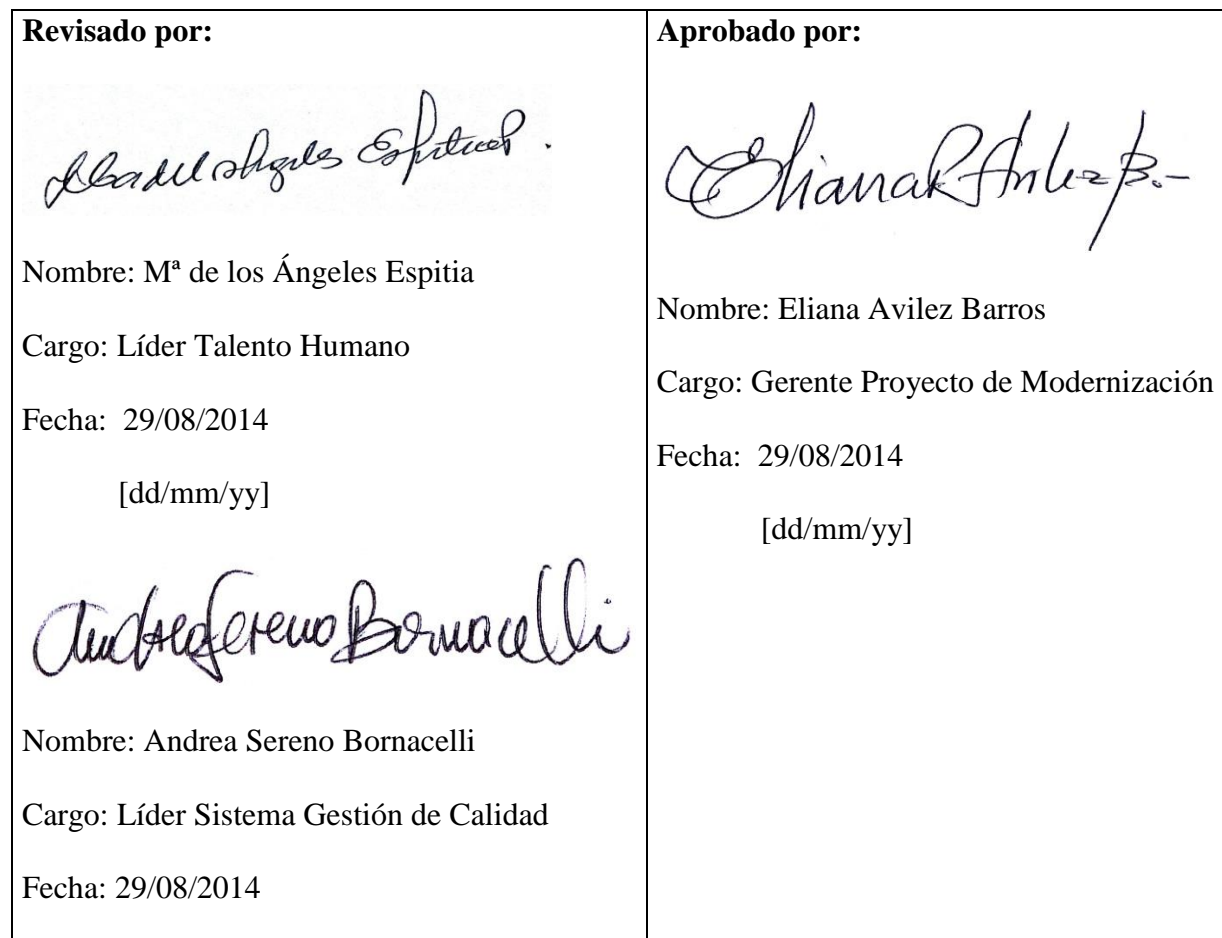 Revisado por:
Mª de los Angeles Espitia.
Nombre: Mª de los Ángeles Espitia
Cargo: Líder Talento Humano
Fecha: 29/08/2014
[dd/mm/yy]
Andrea Sereno Bornacelli
Nombre: Andrea Sereno Bornacelli
Cargo: Líder Sistema Gestión de Calidad
Fecha: 29/08/2014
Aprobado por:
Eliana R Avilez B.-
Nombre: Eliana Avilez Barros
Cargo: Gerente Proyecto de Modernización
Fecha: 29/08/2014
[dd/mm/yy]